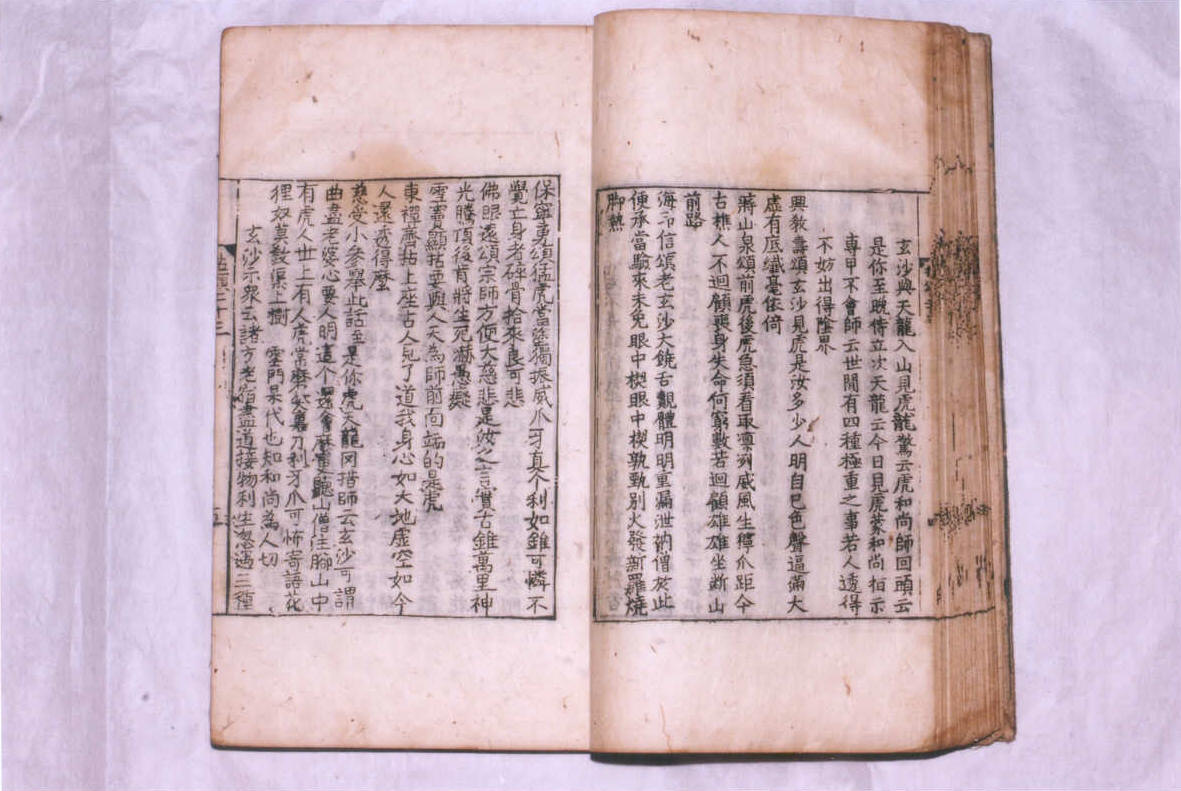 玄沙與天龍入山見虎龍驚云虎和尚師回頭云
是你至晚侍立次天龍云今日見虎蒙和尚指示
專甲不會師云世間有四種極重之事若人透得
不妨出得陰界
興教壽頌玄沙見虎是汝多少人明自己色聲逼滿大
虛有底纖毫依倚
蔣山泉頌前虎後虎急須看取凛冽威風生獰爪距今
古樵人不迴顧喪身失命何窮數若迴顧雄雄坐斷山
前路
海印信頌老玄沙大饒舌覿體明明重漏泄衲僧於此
便承當驗來未免眼中楔眼中楔孰甄別火發新羅燒
脚熱
保寧勇頌猛虎當途獨振威爪牙真个利如錐可憐不
覺亡身者碎骨拾來良可悲
佛眼遠頌宗師方便大慈悲是汝之言實古錐萬里神
光騰頂後肯將生死嚇愚癡
雪竇顯拈要與人天為師前向端的是虎
東禪齊拈上座古人見了道我身心如大地虛空如今
人還透得麽
慈受小參舉此話至是你虎天龍罔措師云玄沙可謂
曲盡老婆心要人明這个 山僧住 山中
有虎人世上有人虎常 利牙爪可怖寄語花
狸奴莫教渠上樹 雲門杲代也知和尚為人切
玄沙示衆云諸方老宿盡道接物利生忽遇三種
拈頌二十三
五